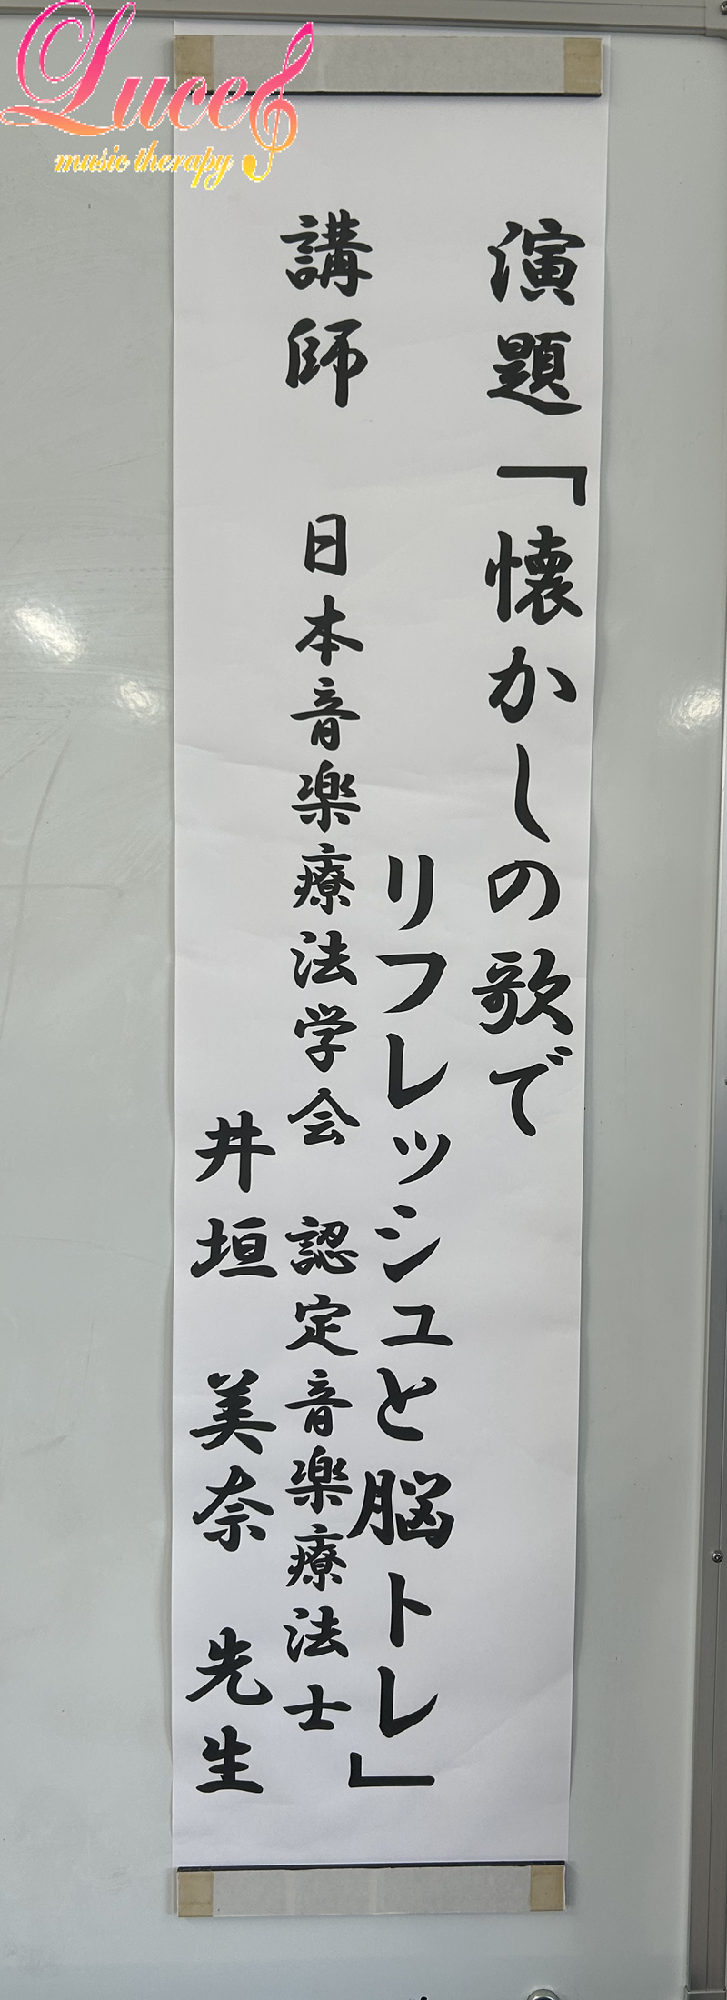 Luce
music therapy
演題「懐かしの歌で
リフレッシュと脳トレ」
講師 日本音楽療法学会 認定音楽療法士
井垣 美奈 先生